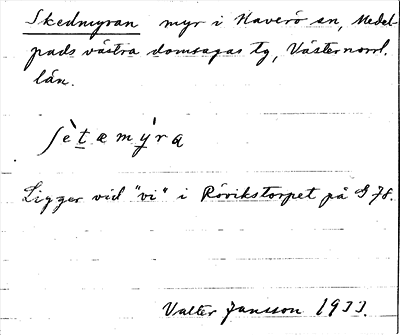 Skedmyran myr i Haverö sn, Medel-
pads västra domsagas tg, Västernorrl.
län.
ʃètæmýra
Ligger vid "vi" i Rörikstorpet på G 78.
Valter Jansson 1933.